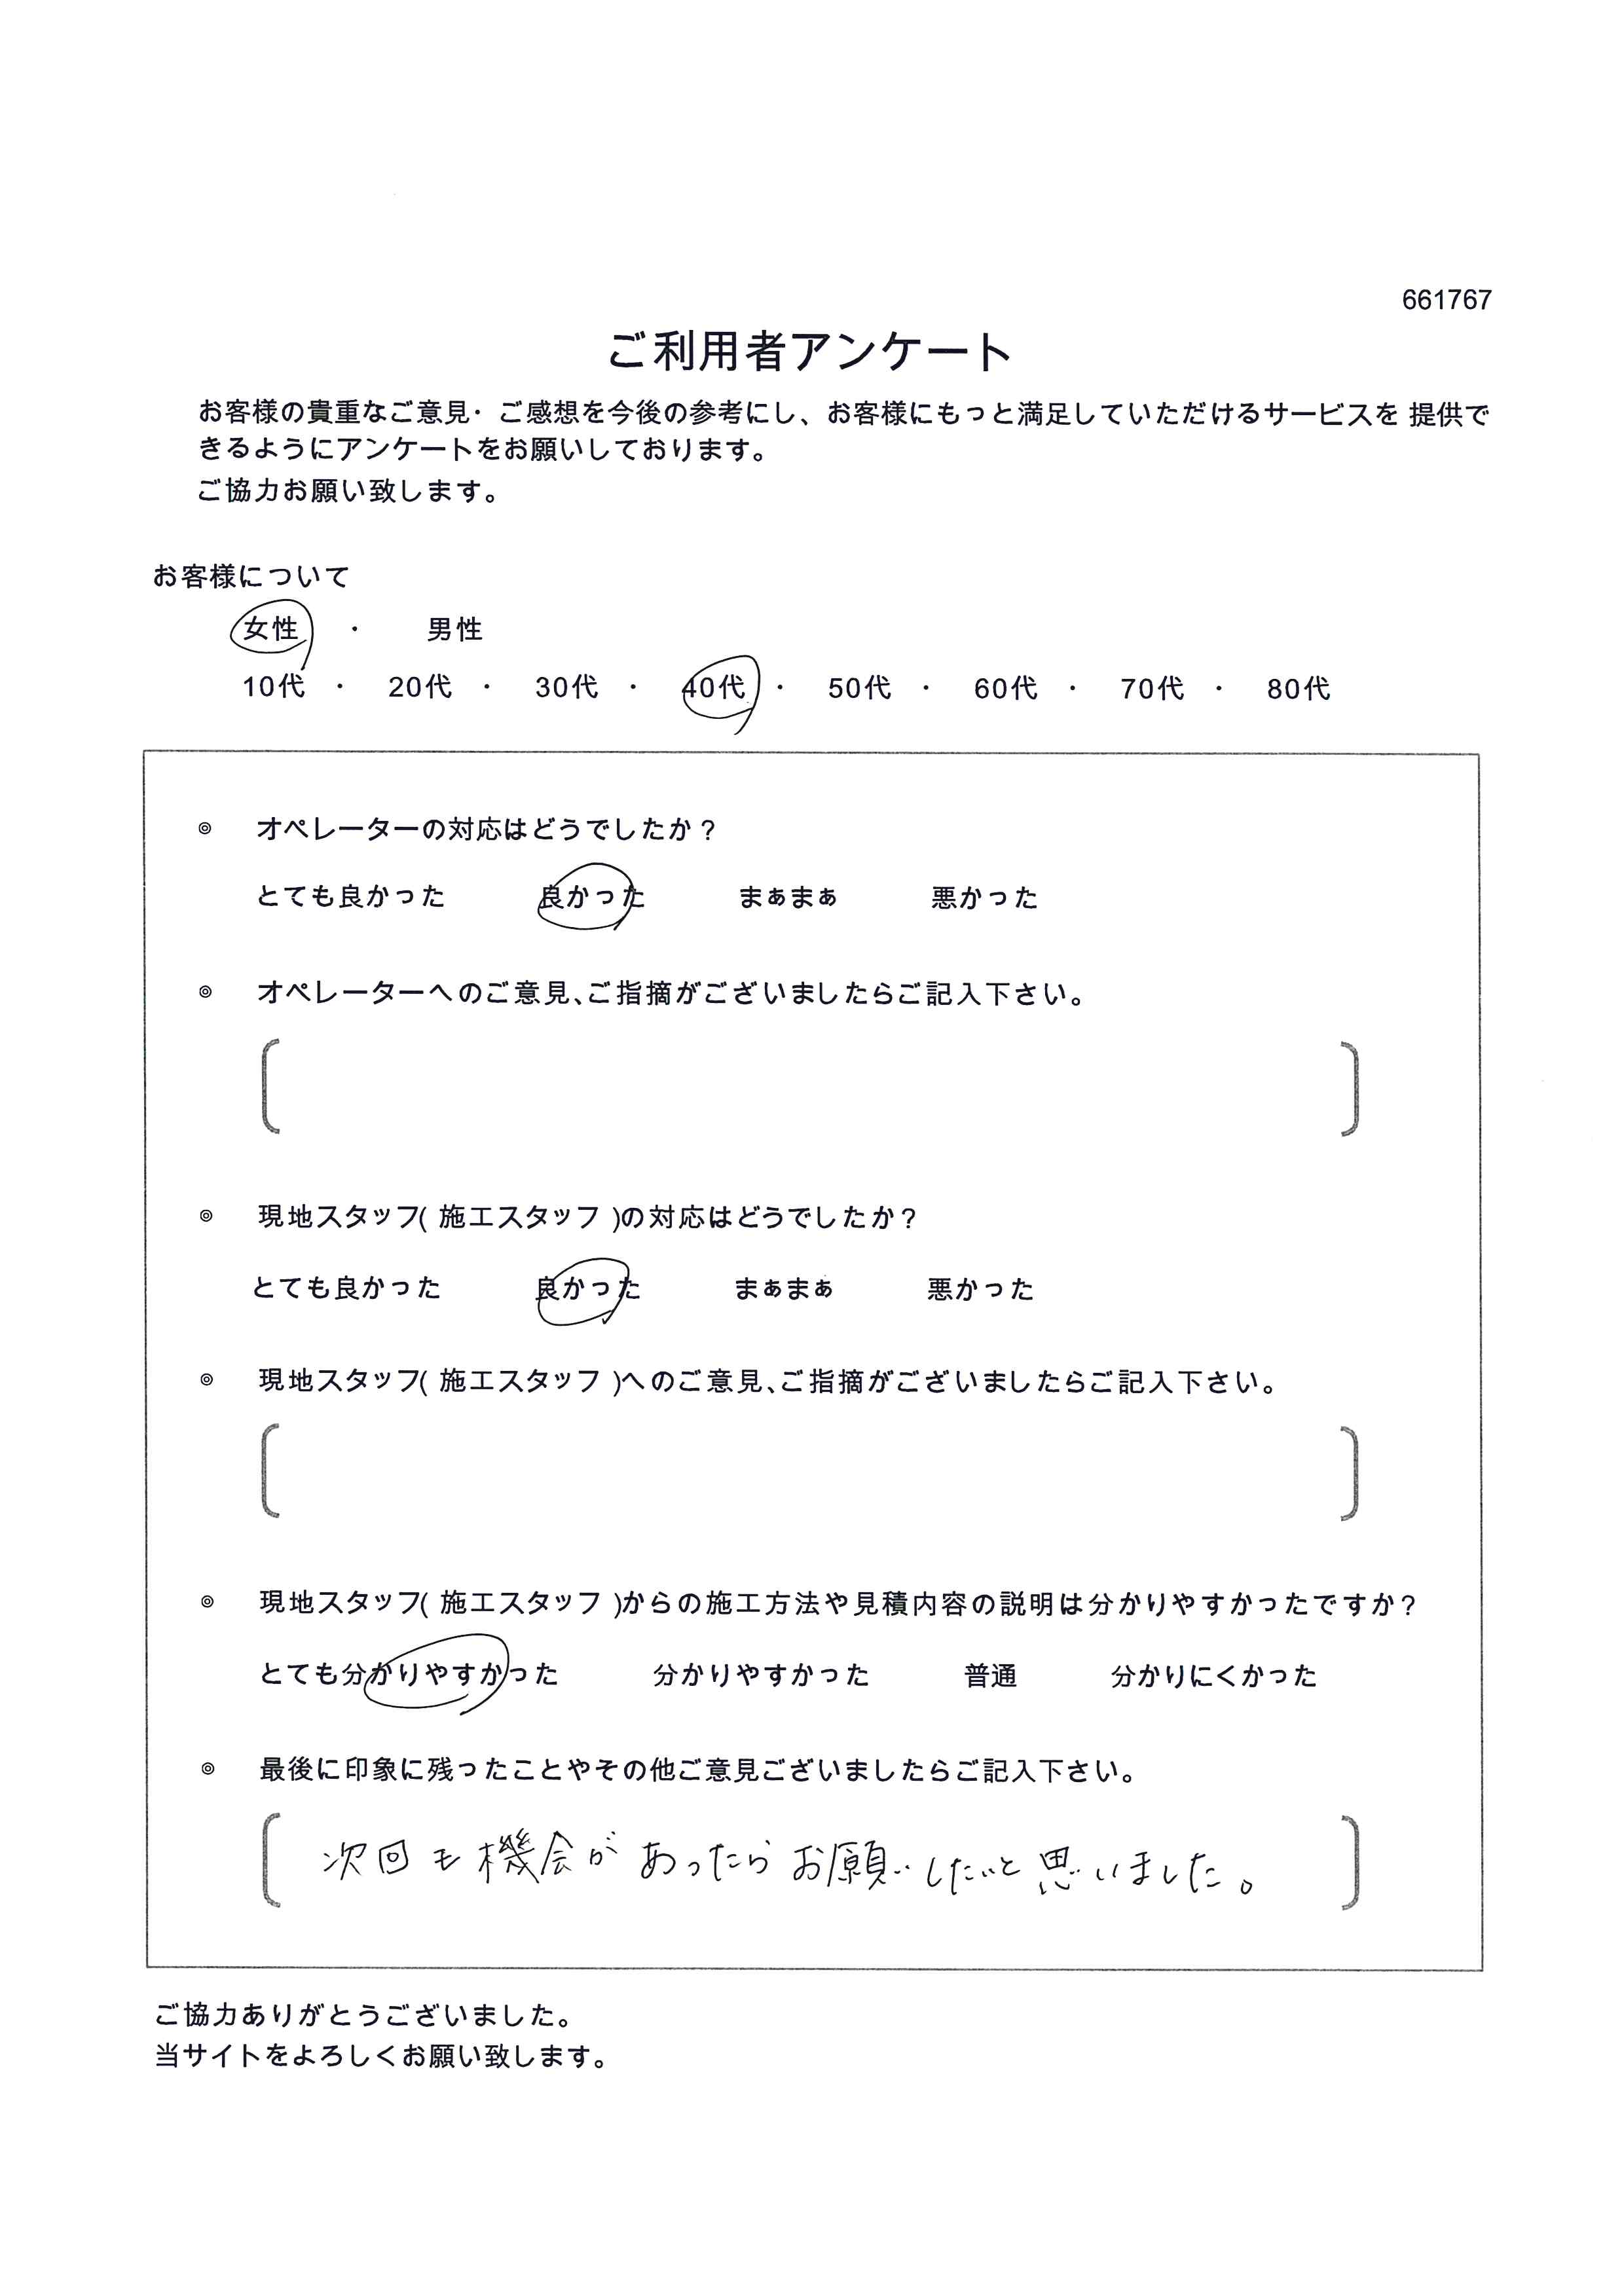 661767
ご利用者アンケート
お客様の貴重なご意見・ご感想を今後の参考にし、お客様にもっと満足していただけるサービスを 提供で
きるようにアンケートをお願いしております。
ご協力お願い致します。
お客様について
女性 ・ 男性
10代 ・ 20代 ・ 30代 ・ 40代 ・ 50代 ・ 60代 ・ 70代 ・ 80代
◎ オペレーターの対応はどうでしたか？
とても良かった 良かった まぁまぁ 悪かった
◎ オペレーターへのご意見、ご指摘がございましたらご記入下さい。
◎ 現地スタッフ( 施工スタッフ )の対応はどうでしたか？
とても良かった 良かった まぁまぁ 悪かった
◎ 現地スタッフ( 施工スタッフ )へのご意見、ご指摘がございましたらご記入下さい。
◎ 現地スタッフ( 施工スタッフ )からの施工方法や見積内容の説明は分かりやすかったですか？
とても分かりやすかった 分かりやすかった 普通 分かりにくかった
◎ 最後に印象に残ったことやその他ご意見ございましたらご記入下さい。
次回も機会があったらお願いしたいと思いました。
ご協力ありがとうございました。
当サイトをよろしくお願い致します。